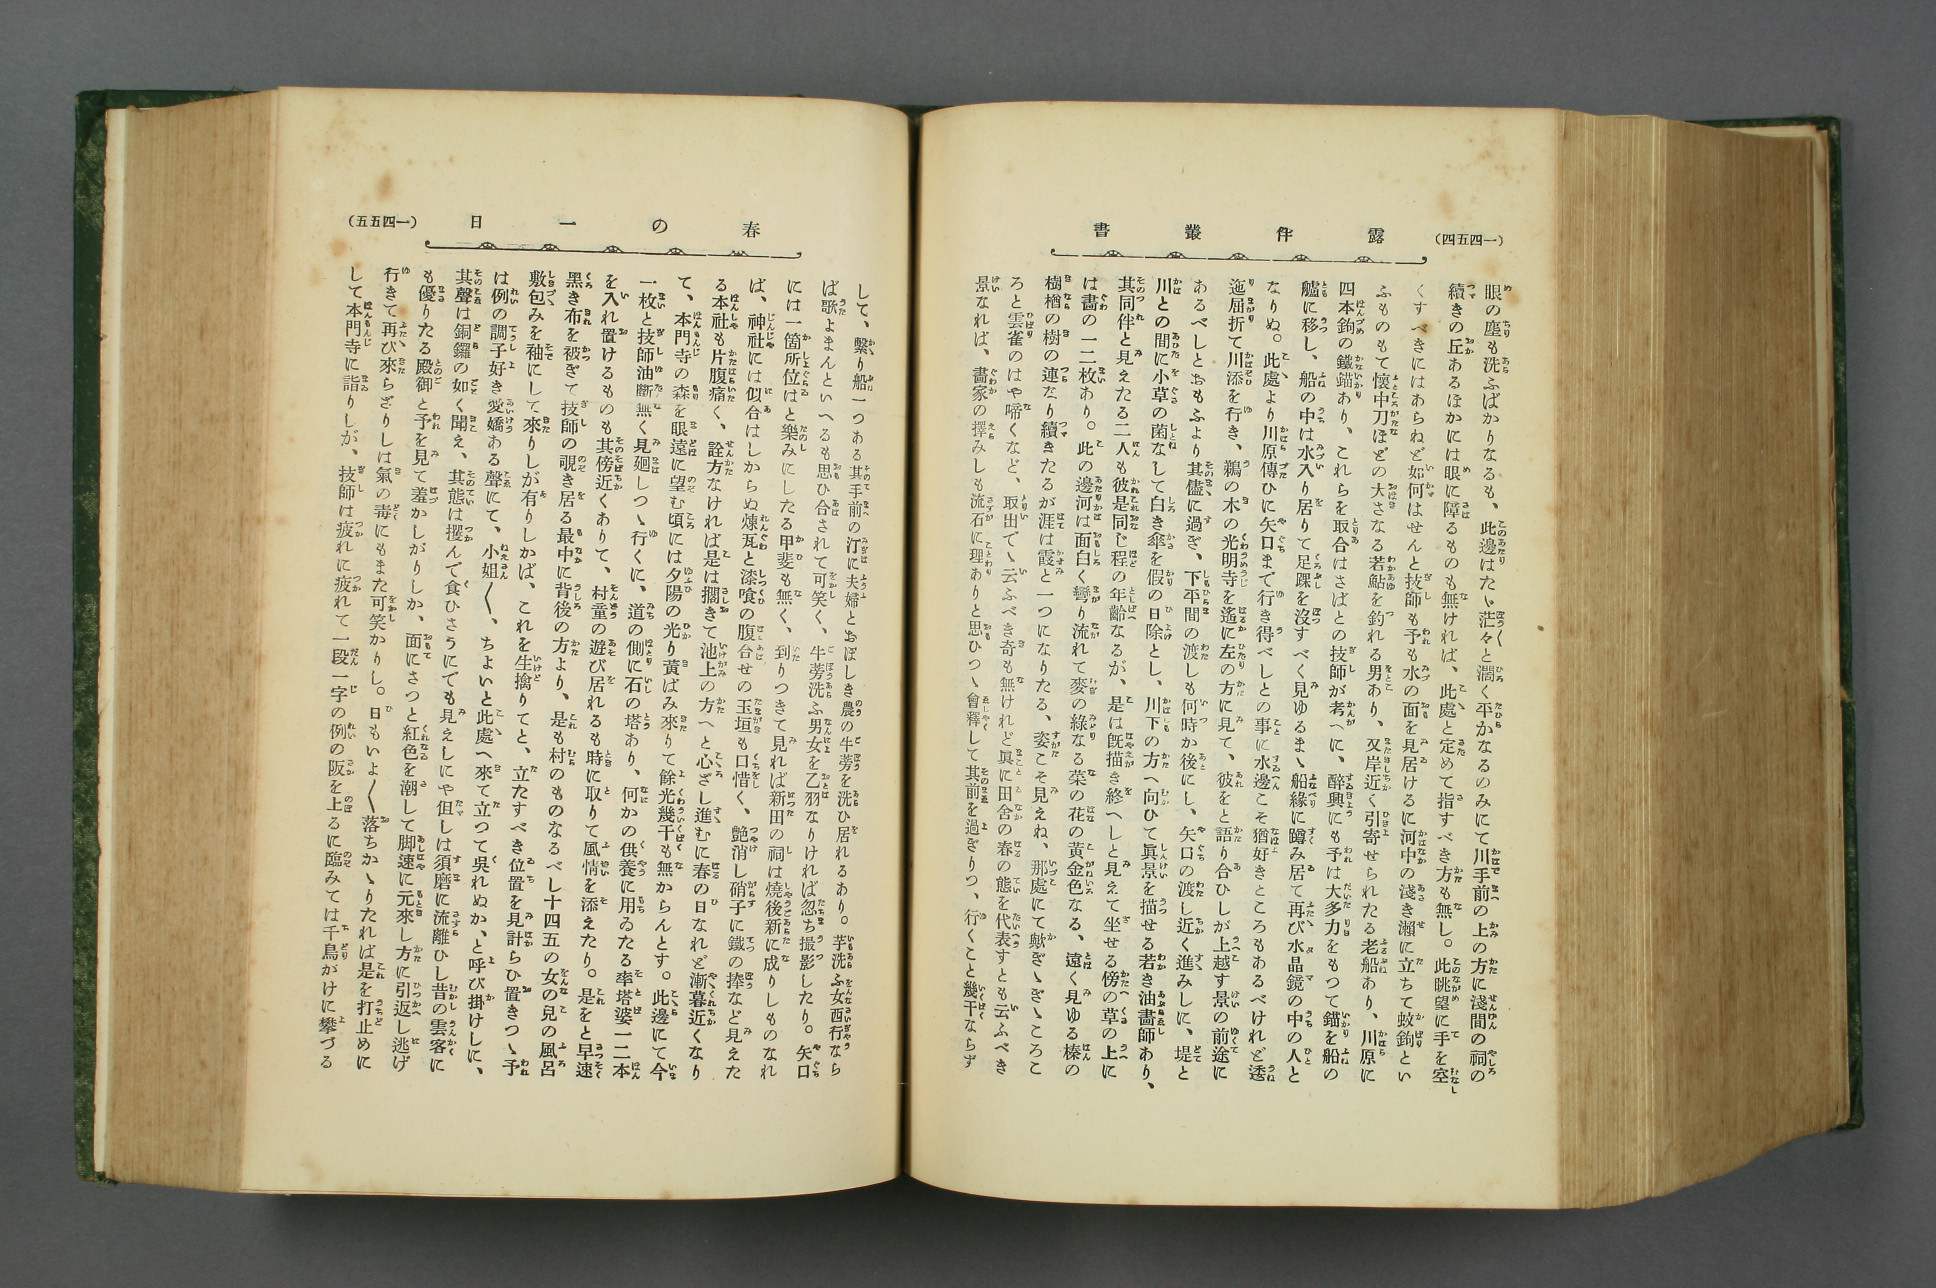 (一四五四)
露伴叢書
眼の塵も洗ふばかりなるも、此邊はたゞ茫々と濶く平かなるのみにて川手前の上の方に淺間の祠の
續きの丘あるほかには眼に障るものも無ければ、此處と定めて指すべき方も無し。此眺望に手を空
くすべきにはあらねど如何はせんと技師も予も水の面を見居けるに河中の淺き瀬に立ちて蚊鉤とい
ふものもて懷中刀ほどの大さなる若鮎を釣れる男あり、又岸近く引寄せられたる老船あり、川原に
四本鉤の鐵錨あり、これらを取合はさばとの技師が考へに、醉興にも予は大多力をもつて錨を船の
艫に移し、船の中は水入り居りて足踝を沒すべく見ゆるまゝ船縁に蹲み居て再び水晶鏡の中の人と
なりぬ。此處より川原傳ひに矢口まで行き得べしとの事に水邊こそ猶好きところもあるべけれど逶
迤屈折て川添を行き、鵜の木の光明寺を遙に左の方に見て、彼をと語り合ひしが上越す景の前途に
あるべしとおもふより其儘に過ぎ、下平間の渡しも何時か後にし、矢口の渡し近く進みしに、堤と
川との間に小草の茵なして白き傘を假の日除とし、川下の方へ向ひて眞景を描せる若き油畵師あり、
其同伴と見えたる二人も彼是同じ程の年齡なるが、是は既描き終へしと見えて坐せる傍の草の上に
は畵の一二枚あり。此の邊河は面白く彎り流れて麥の綠なる菜の花の黄金色なる、遠く見ゆる榛の
樹楢の樹の連なり續きたるが涯は霞と一つになりたる、姿こそ見えね、那處にて歟ぎゝぎゝころこ
ろと雲雀のはや啼くなど、取出でゝ云ふべき奇も無けれど眞に田舍の春の態を代表すとも云ふべき
景なれば、畵家の擇みしも流石に理ありと思ひつゝ會釋して其前を過ぎりつ、行くこと幾干ならず
(一四五五)
春の一日
して、繋り船一つある其手前の汀に夫婦とおぼしき農の牛蒡を洗ひ居れるあり。芋洗ふ女西行なら
ば歌よまんといへるも思ひ合されて可笑く、牛蒡洗ふ男女を乙羽なりければ忽ち撮影したり。矢口
には一箇所位はと樂みにしたる甲斐も無く、到りつきて見れば新田の祠は燒後新に成りしものなれ
ば、神社には似合はしからぬ煉瓦と漆喰の腹合せの玉垣も口惜く、艶消し硝子に鐵の捧など見えた
る本社も片腹痛く、詮方なければ是は擱きて池上の方へと心ざし進むに春の日なれど漸暮近くなり
て、本門寺の森を眼遠に望む頃には夕陽の光り黄ばみ來りて餘光幾干も無からんとす。此邊にて今
一枚と技師油斷無く見廻しつゝ行くに、道の側に石の塔あり、何かの供養に用ゐたる率塔婆一二本
を入れ置けるものも其傍近くありて、村童の遊び居れるも時に取りて風情を添えたり。是をと早速
黑き布を被ぎて技師の覗き居る最中に背後の方より、是も村のものなるべし十四五の女の兒の風呂
敷包みを袖にして來りしが有りしかば、これを生擒りてと、立たすべき位置を見計らひ置きつゝ予
は例の調子好き愛嬌ある聲にて、小姐〱、ちよいと此處へ來て立つて吳れぬか、と呼び掛けしに、
其聲は銅鑼の如く聞え、其態は攫んで食ひさうにても見えしにや但しは須磨に流離ひし昔の雲客に
も優りたる殿御と予を見て羞かしがりしか、面にさつと紅色を潮して脚速に元來し方に引返し逃げ
行きて再び來らざりしは氣の毒にもまた可笑かりし。日もいよ〱落ちかゝりたれば是を打止めに
して本門寺に詣りしが、技師は疲れに疲れて一段一字の例の阪を上るに臨みては千鳥がけに攀づる